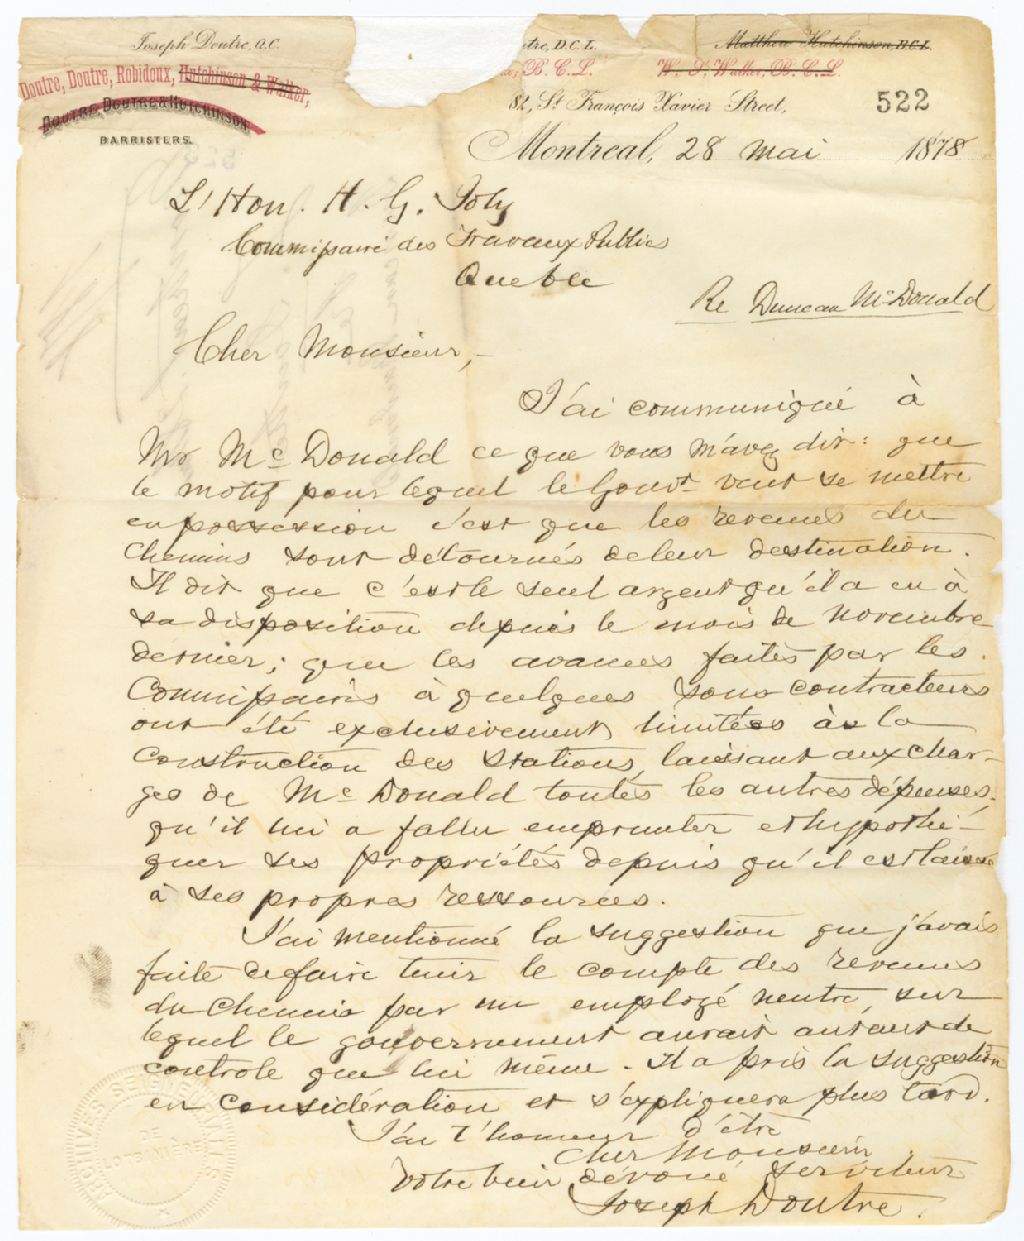 Joseph Doutre, Q.C.
tre, D.C.L.
Matthew Hutchinson B.C.L.
Doutre, Doutre, Robidoux, Hutchinson & Walker,
B.C.L.
W. S. Walker, B.C.L.
DOUTRE, DOUTRE & HUTCHINSON
BARRISTERS.
82, St François Xavier Street,
522
Montreal, 28 mai 1878
L'Hon. H. G. Joly
Commissaire des Travaux Publics
Quebec
Re Duncan McDonald
Cher Monsieur,
J'ai communiqué à
Mr McDonald ce que vous m'avez dit: que
le motif pour lequel le Gouvt veut se mettre
en possession c'est que les revenus du
chemins sont détournés de leur destination.
Il dit que c'est le seul argent qu'il a eu à
sa disposition depuis le mois de novembre
dernier; que les avances faites par les
Commissaires à quelques sous contracteurs
ont été exclusivement limitées à la
construction des stations laissant aux char-
ges de McDonald toutes les autres dépenses.
qu'il lui a fallu emprunter et hypothé-
quer ses propriétés depuis qu'il est laissé
à ses propres ressources.
J'ai mentionné la suggestion que j'avais
faite de faire tenir le compte des revenus
du chemin par un employé neutre, sur
lequel le gouvernement aurait autant de
controle que lui même. Il a pris la suggestion
en considération et s'expliquera plus tard.
J'ai l'honneur d'être
Cher Monsieur
Votre bien dévoué serviteur
Joseph Doutre.
ARCHIVES SEIGNEURIALES
DE
LOTBINIÈRE